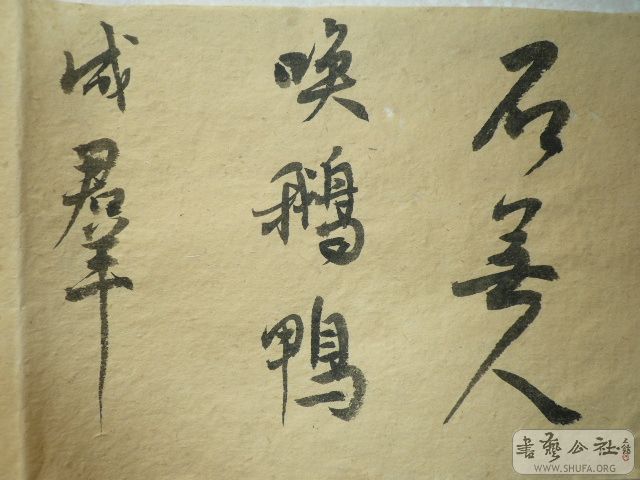 石美人
唤鹅鸭
成群
書藝公社
WWW.SHUFA.ORG